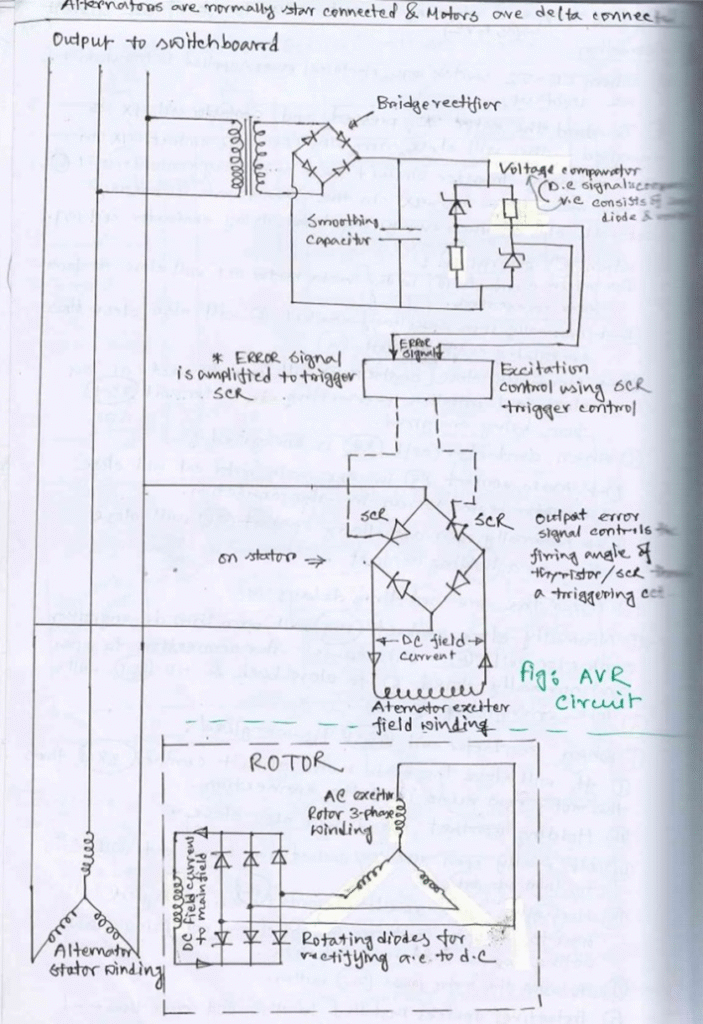 Alternators are normally star connected & Motors are delta
Output to switchboard
Bridge rectifier
Voltage comparator
D.C signals
V.C consists of
diode &
Smoothing
Capacitor
ERROR
Signal
* ERROR Signal
is amplified to trigger
SCR
Excitation
control using SCR
trigger control
SCR
SCR
on stator →
Output error
signal controls
firing angle of
thyristor/SCR
a triggering
DC field
current
Fig: AVR
Circuit
Aternator exciter
field winding
ROTOR
AC exciter
Rotor 3-phase
winding
DC Field current
to mainfield
Rotating diodes for
rectifying a.c. to d.c
Alternator
Stator winding